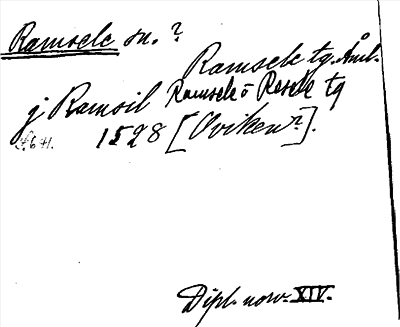 Ramsele sn. ?
Ramsele tg. Ånl.
j Ramsil Ramsele o Resele tg
1528 [Oviken?].
Dipl. norv. XIV.